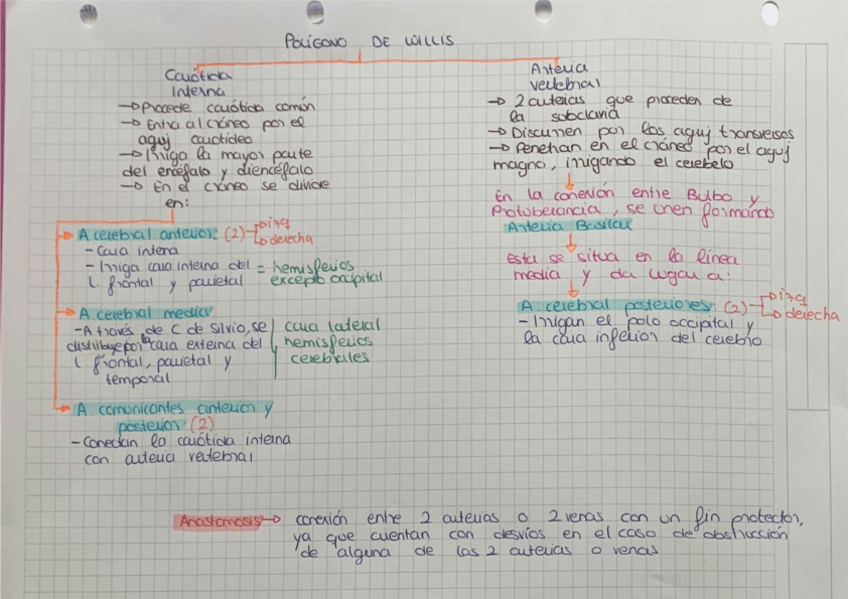 POLÍGONO DE WILLIS
Carótida
Interna
→ Procede carótida común
→ Entra al cráneo por el
aguj carotídeo
→ Irriga la mayor parte
del encéfalo y diencéfalo
→ En el cráneo se divide
en:
→ A cerebral anterior: (2) → izq
→ derecha
- Cara interna
- Irriga cara interna del = hemisferios
L frontal y parietal excepto occipital
→ A cerebral media
- A través de C de Silvio, se cara lateral
distribuye por la cara externa del hemisferios
L frontal, parietal y cerebrales
temporal
→ A comunicantes anterior y
posterior (2)
- Conectan la carótida interna
con arteria vertebral
Arteria
vertebral
→ 2 arterias que proceden de
la subclavia
→ Discurren por los aguj transversos
→ Penetran en el cráneo por el aguj
magno, irrigando el cerebelo
En la conexión entre Bulbo y
Protoberancia, se unen formando
Arteria Basilar
Esta se situa en la línea
media y da lugar a:
A. cerebral posteriores: (2) → izq
→ derecha
- Irrigan el polo occipital y
la cara inferior del cerebro
Anastomosis → conexión entre 2 arterias o 2 venas con un fin protector,
ya que cuentan con desvíos en el caso de obstrucción
de alguna de las 2 arterias o venas